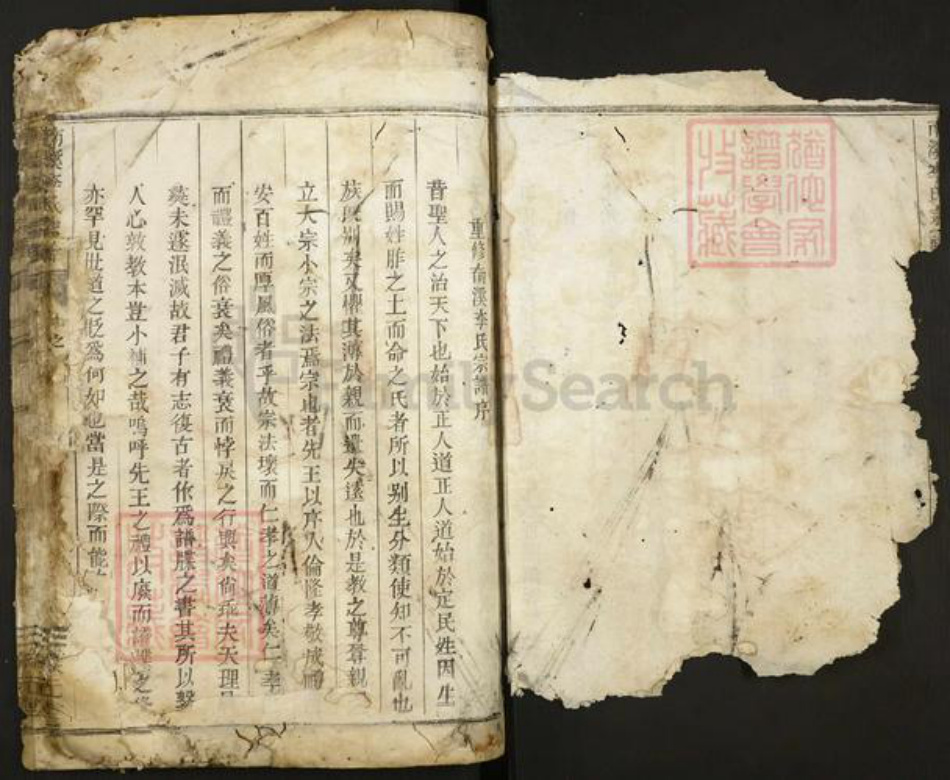 重修南溪李氏宗譜序
昔聖人之治天下也始於正人道正人道始於定民姓因生
而賜姓胙之土而命之氏者所以别生分類使知不可亂也
族既别矣又懼其薄於親而遺失遠也於是教之尊尊親
立大宗小宗之法焉宗也者先王以序人倫隆孝敬成
安百姓而厚風俗者乎故宗法壞而仁孝之道薄矣仁孝
而禮義之俗衰矣禮義衰而悖戾之行興矣尚乖夫天理
彝未遂泯滅故君子有志復古者作爲譜牒之書其所以繫
人心敦教本豈小補之哉嗚呼先王之禮以廢而譜牒之
亦罕見世道之貶爲何如也當是之際而能
FamilySearch
猶他家
譜學會
收藏